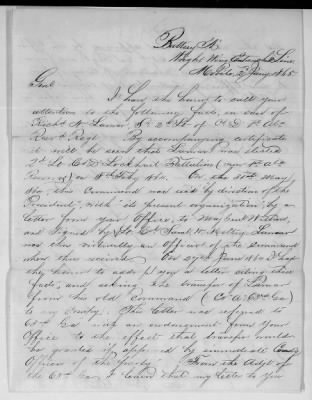 Battery "A"
Right Wing Line
Mobile, 2d Jany 1865.
Genl
I have the honor to call your
attention to the following facts, in case of
Richd N. Lamar, Jr 2d Lt of Co "D" 1st Ala
Res. Regt. By accompanying certificate
it will be seen that Lamar was elected
2d Lt Co D Lockhart Battalion (now 1st Ala
) on Feby 1864. On the May
1864 this Command was by direction of the
President, with "its present organization", by a
letter from your Office, to
and signed by Lamar
was thus virtually an Officer of the command
when thus received. On 29th June 1864 I had
the honor to address you a letter citing these
facts, and asking the transfer of Lamar
from his old command (Co "A" 63rd Ga)
to my Compy. This letter was referred to
63rd Ga with an endorsement from your
Office to the effect that transfer would
be granted if approved by immediate Comdg
Officer of the party. From the Adjt of
the 63rd Ga, I learn that my letter to you